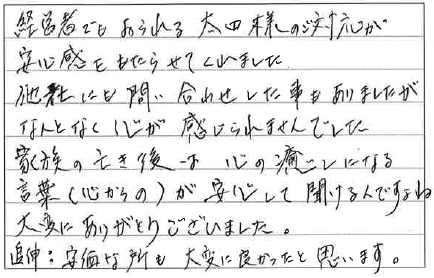 経営者でもあられる太田様の対応が
安心感をもたらせてくれました
他社にも問い合わせした事もありましたが
なんとなく心が感じられませんでした
家族の亡き後は心の癒しになる
言葉(心からの)が安心して聞けるんですよね
大変にありがとうございました。
追伸:安価な所も大変に良かったと思います。